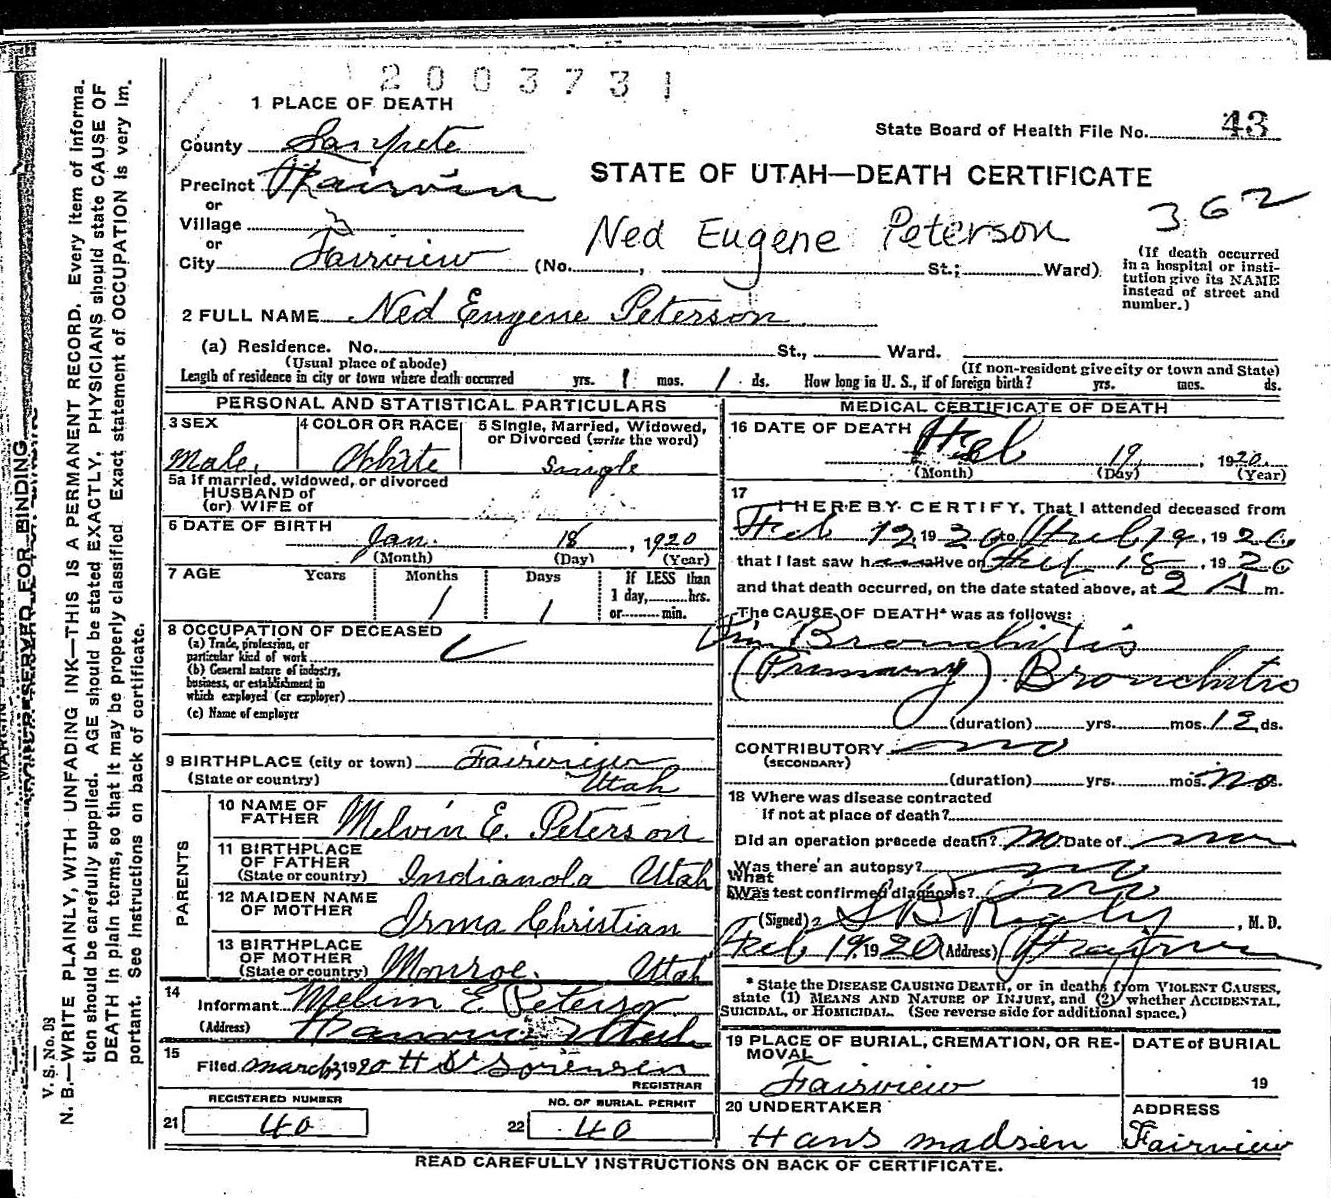 2003731
1 PLACE OF DEATH
State Board of Health File No. 43
County Sanpete
STATE OF UTAH—DEATH CERTIFICATE
Precinct Fairview
or
362
Village
or
Ned Eugene Peterson
City Fairview (No. , St.; Ward)
(If death occurred in a hospital or insti-
tution give its NAME
instead of street and
number.)
2 FULL NAME Ned Eugene Peterson
(a) Residence. No. St., Ward.
(Usual place of abode) (If non-resident give city or town and State)
Length of residence in city or town where death occurred yrs. 1 mos. 1 ds. How long in U. S., if of foreign birth? yrs. mos. ds.
PERSONAL AND STATISTICAL PARTICULARS
3 SEX
Male
4 COLOR OR RACE
White
5 Single, Married, Widowed,
or Divorced (write the word)
Single
5a If married, widowed, or divorced
HUSBAND of
(or) WIFE of
6 DATE OF BIRTH
Jan. 18, 1920
(Month) (Day) (Year)
7 AGE Years Months Days If LESS than
1 1 1 day, hrs.
or min.
8 OCCUPATION OF DECEASED
(a) Trade, profession, or
particular kind of work
(b) General nature of industry,
business, or establishment in
which employed (or employer)
(c) Name of employer
9 BIRTHPLACE (city or town) Fairview
(State or country) Utah
PARENTS
10 NAME OF
FATHER Melvin E. Peterson
11 BIRTHPLACE
OF FATHER
(State or country) Indianola Utah
12 MAIDEN NAME
OF MOTHER Irma Christian
13 BIRTHPLACE
OF MOTHER
(State or country) Monroe. Utah
14
Informant Melvin E Peterson
(Address) Fairview Utah
15
Filed March 1920 Sorensen
REGISTRAR
REGISTERED NUMBER
21 40
NO. OF BURIAL PERMIT
22 40
MEDICAL CERTIFICATE OF DEATH
16 DATE OF DEATH
Feb 19, 1920
(Month) (Day) (Year)
17
I HEREBY CERTIFY, That I attended deceased from
Feb 12, 1920 to Feb 19, 1920
that I last saw h alive on Feb 18, 1920
and that death occurred, on the date stated above, at 2 A m.
The CAUSE OF DEATH* was as follows:
Bronchitis
(Primary) Bronchitis
(duration) yrs. mos. 12 ds.
CONTRIBUTORY no
(SECONDARY)
(duration) yrs. mos. no ds.
18 Where was disease contracted
if not at place of death?
Did an operation precede death? no Date of no
Was there an autopsy? no
What
Was test confirmed diagnosis? no
(Signed) S B Rigby, M. D.
Feb 19, 1920 (Address) Fairview
* State the DISEASE CAUSING DEATH, or in deaths from VIOLENT CAUSES,
state (1) MEANS AND NATURE OF INJURY, and (2) whether ACCIDENTAL,
SUICIDAL, or HOMICIDAL. (See reverse side for additional space.)
19 PLACE OF BURIAL, CREMATION, OR RE-
MOVAL
Fairview
DATE of BURIAL
19
20 UNDERTAKER
Hans Madsen
ADDRESS
Fairview
READ CAREFULLY INSTRUCTIONS ON BACK OF CERTIFICATE.
RESERVED FOR BINDING
V. S. No. D3
N. B.—WRITE PLAINLY, WITH UNFADING INK—THIS IS A PERMANENT RECORD. Every item of informa-
tion should be carefully supplied. AGE should be stated EXACTLY. PHYSICIANS should state CAUSE OF
DEATH in plain terms, so that it may be properly classified. Exact statement of OCCUPATION is very im-
portant. See instructions on back of certificate.